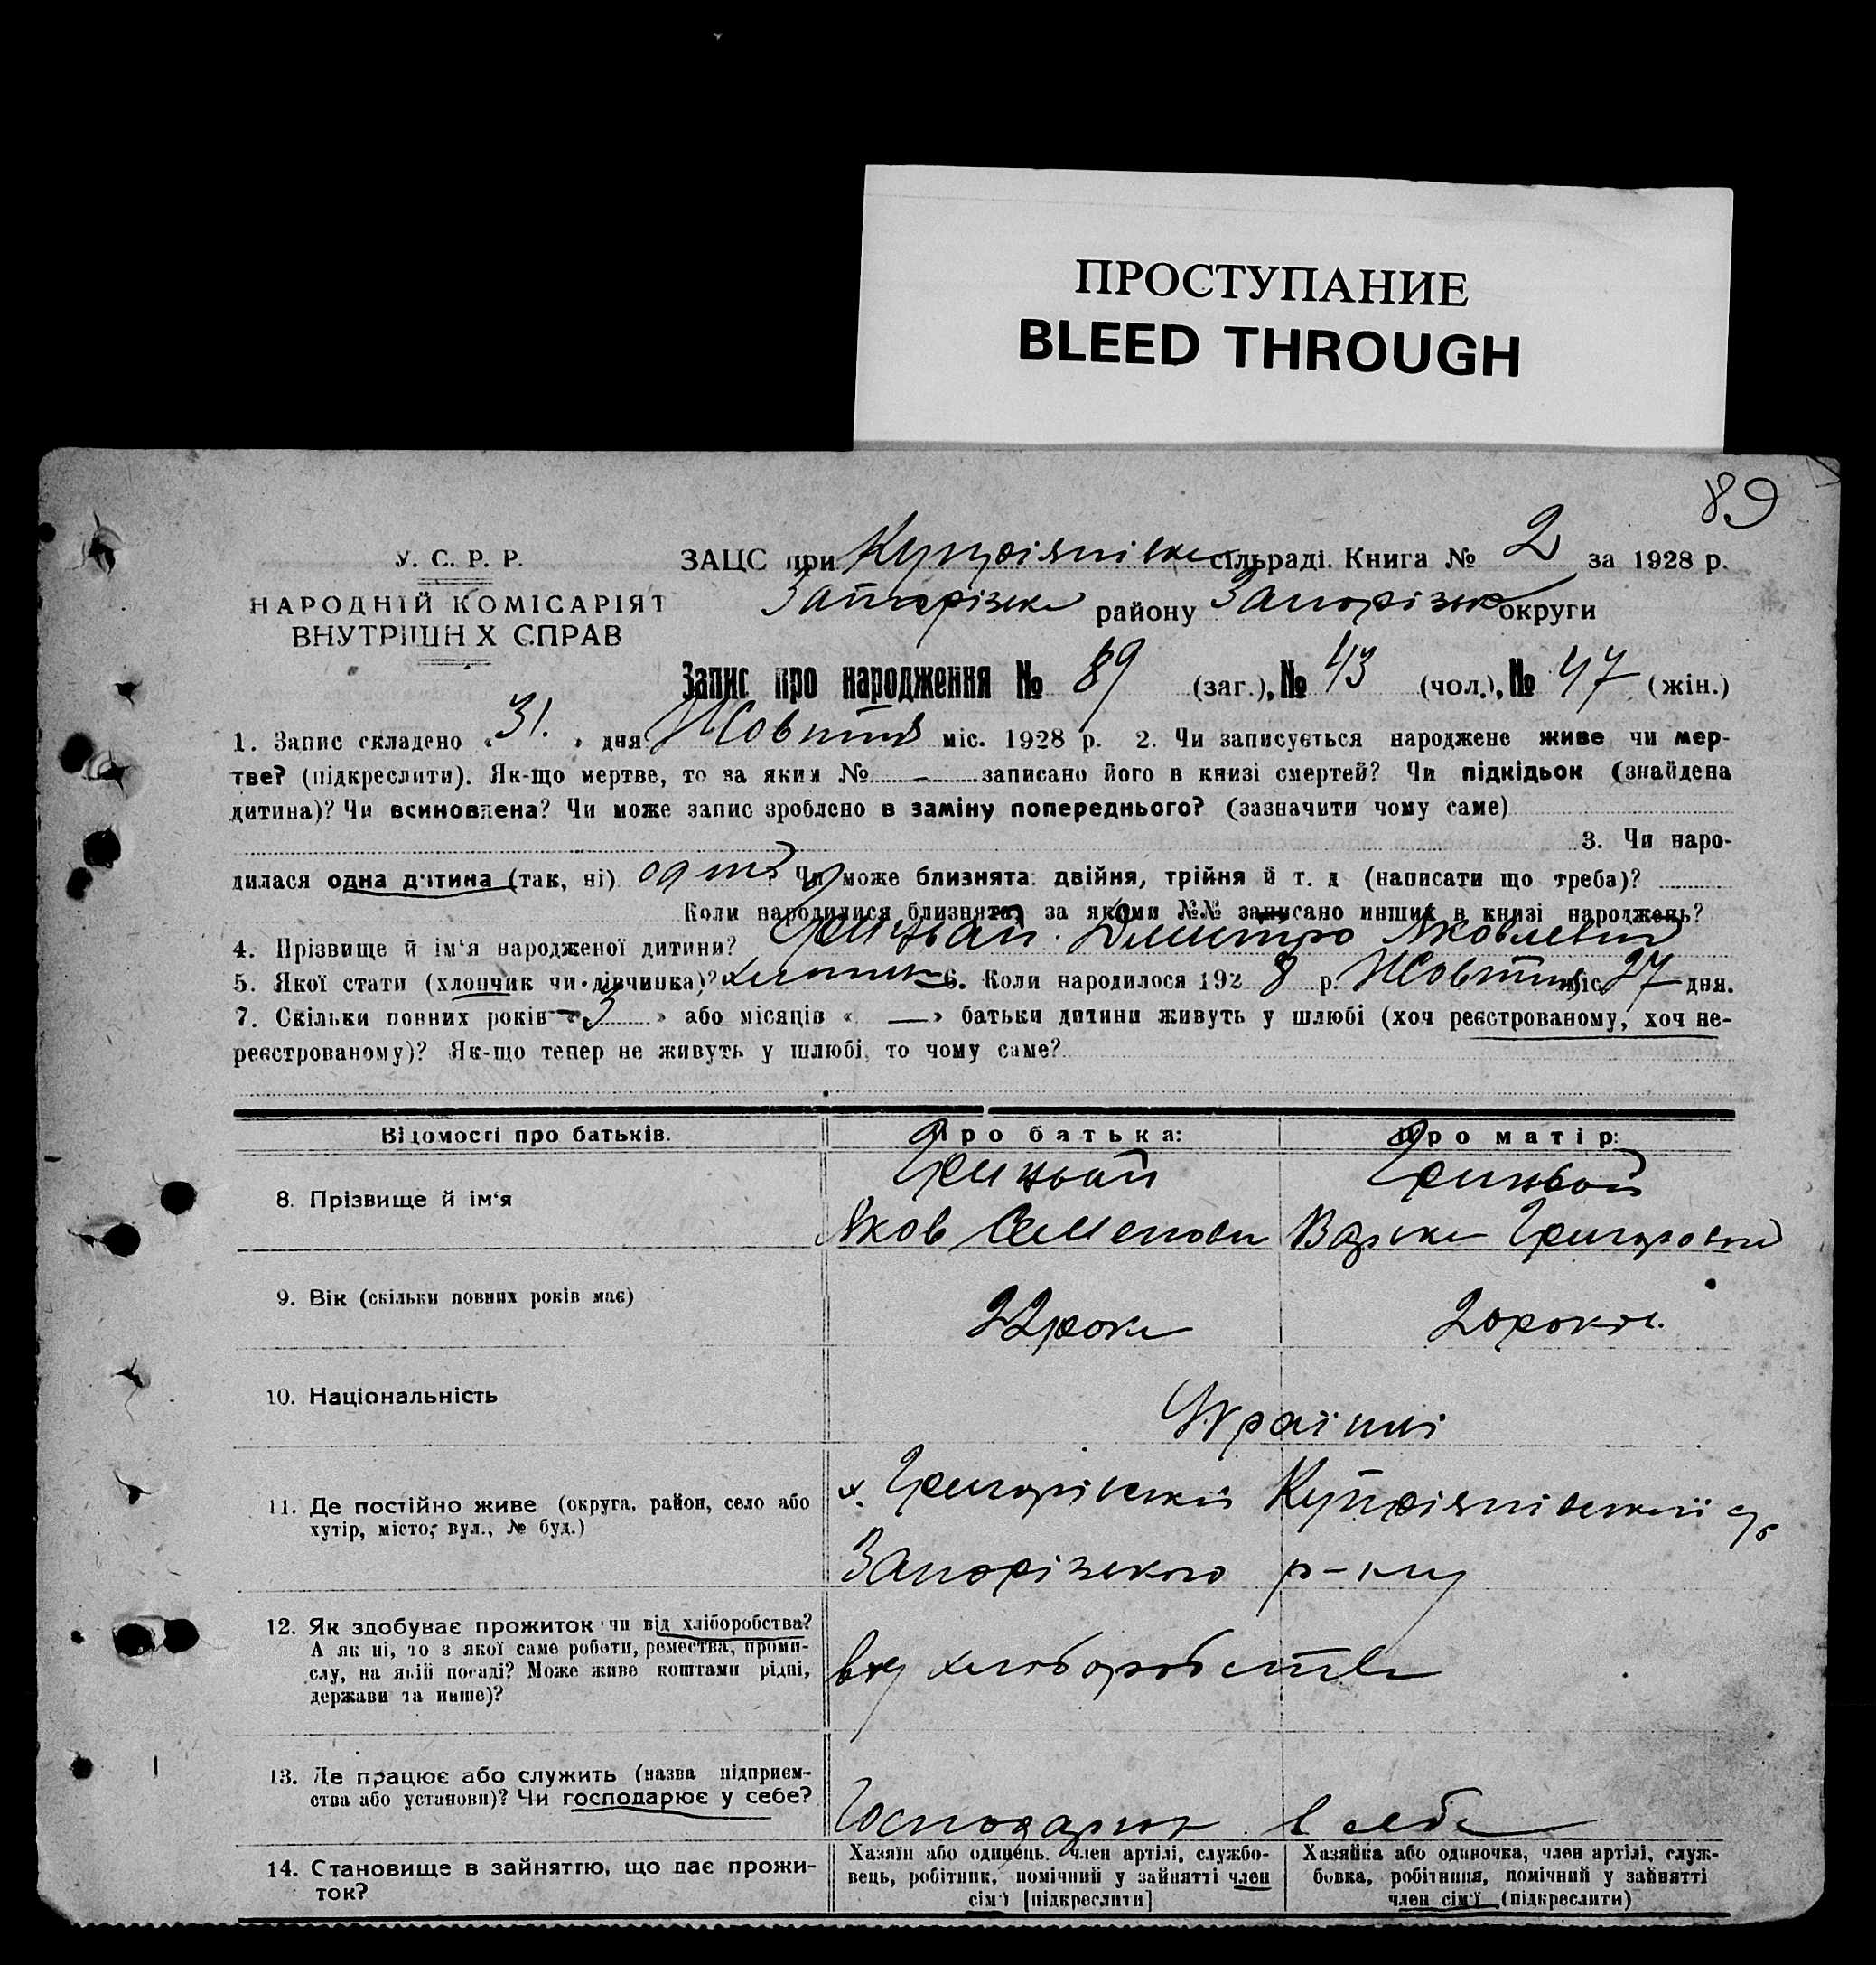 ПРОСТУПАНИЕ
BLEED THROUGH
89
У. С. Р. Р.
НАРОДНІЙ КОМІСАРІЯТ
ВНУТРІШН Х СПРАВ
ЗАЦС при Купріянівск сільраді. Книга № 2 за 1928 р.
Запорізск району Запорізск округи
Запис про народження № 89 (заг.), № 43 (чол.), № 47 (жін.)
1. Запис складено « 31. » дня Жовтня міс. 1928 р. 2. Чи записується народжене живе чи мер-
тве? (підкреслити). Як-що мертве, то за яким № - записано його в книзі смертей? Чи підкідьок (знайдена
дитина)? Чи всиновлена? Чи може запис зроблено в заміну попереднього? (зазначити чому саме)
3. Чи наро-
дилася одна дитина (так, ні) одна? Чи може близнята: двійня, трійня й т. д (написати що треба)?
Коли народилися близнята, за якими №№ записано инших в книзі народжень?
4. Прізвище й ім‘я народженої дитини? Гриньвай Дмитро Яковлевич
5. Якої стати (хлопчик чи дівчинка)? хлопчик 6. Коли народилося 192 8 р. Жовтня міс. 27 дня.
7. Скільки повних років « 3 » або місяців « — » батьки дитини живуть у шлюбі (хоч реєстрованому, хоч не-
реєстрованому)? Як-що тепер не живуть у шлюбі, то чому саме?
Відомості про батьків.
Про батька:
Про матір:
8. Прізвище й ім‘я
Гриньвай
Яков Семенови
Гриньвай
Варька
9. Вік (скільки повних років має)
22 роки
20 років.
10. Національність
Українці
11. Де постійно живе (округа, район, село або
хутір, місто, вул., № буд.)
х. Григорівский Купріянівський с/р
Запорізського р-ну
12. Як здобуває прожиток чи від хліборобства?
А як ні, то з якої саме роботи, ремества, проми-
слу, на якій посаді? Може живе коштами рідні,
держави та инше)?
від хліборобства
13. Де працює або служить (назва підприєм-
ства або установи)? Чи господарює у себе?
Господарют в себе
14. Становище в зайняттю, що дає прожи-
ток?
Хазяїн або одинець, член артілі, службо-
вець, робітник, помічний у зайнятті член
сім‘ї [підкреслити]
Хазяйка або одиночка, член артілі, служ-
бовка, робітниця, помічний у зайнятті
член сім‘ї (підкреслити)